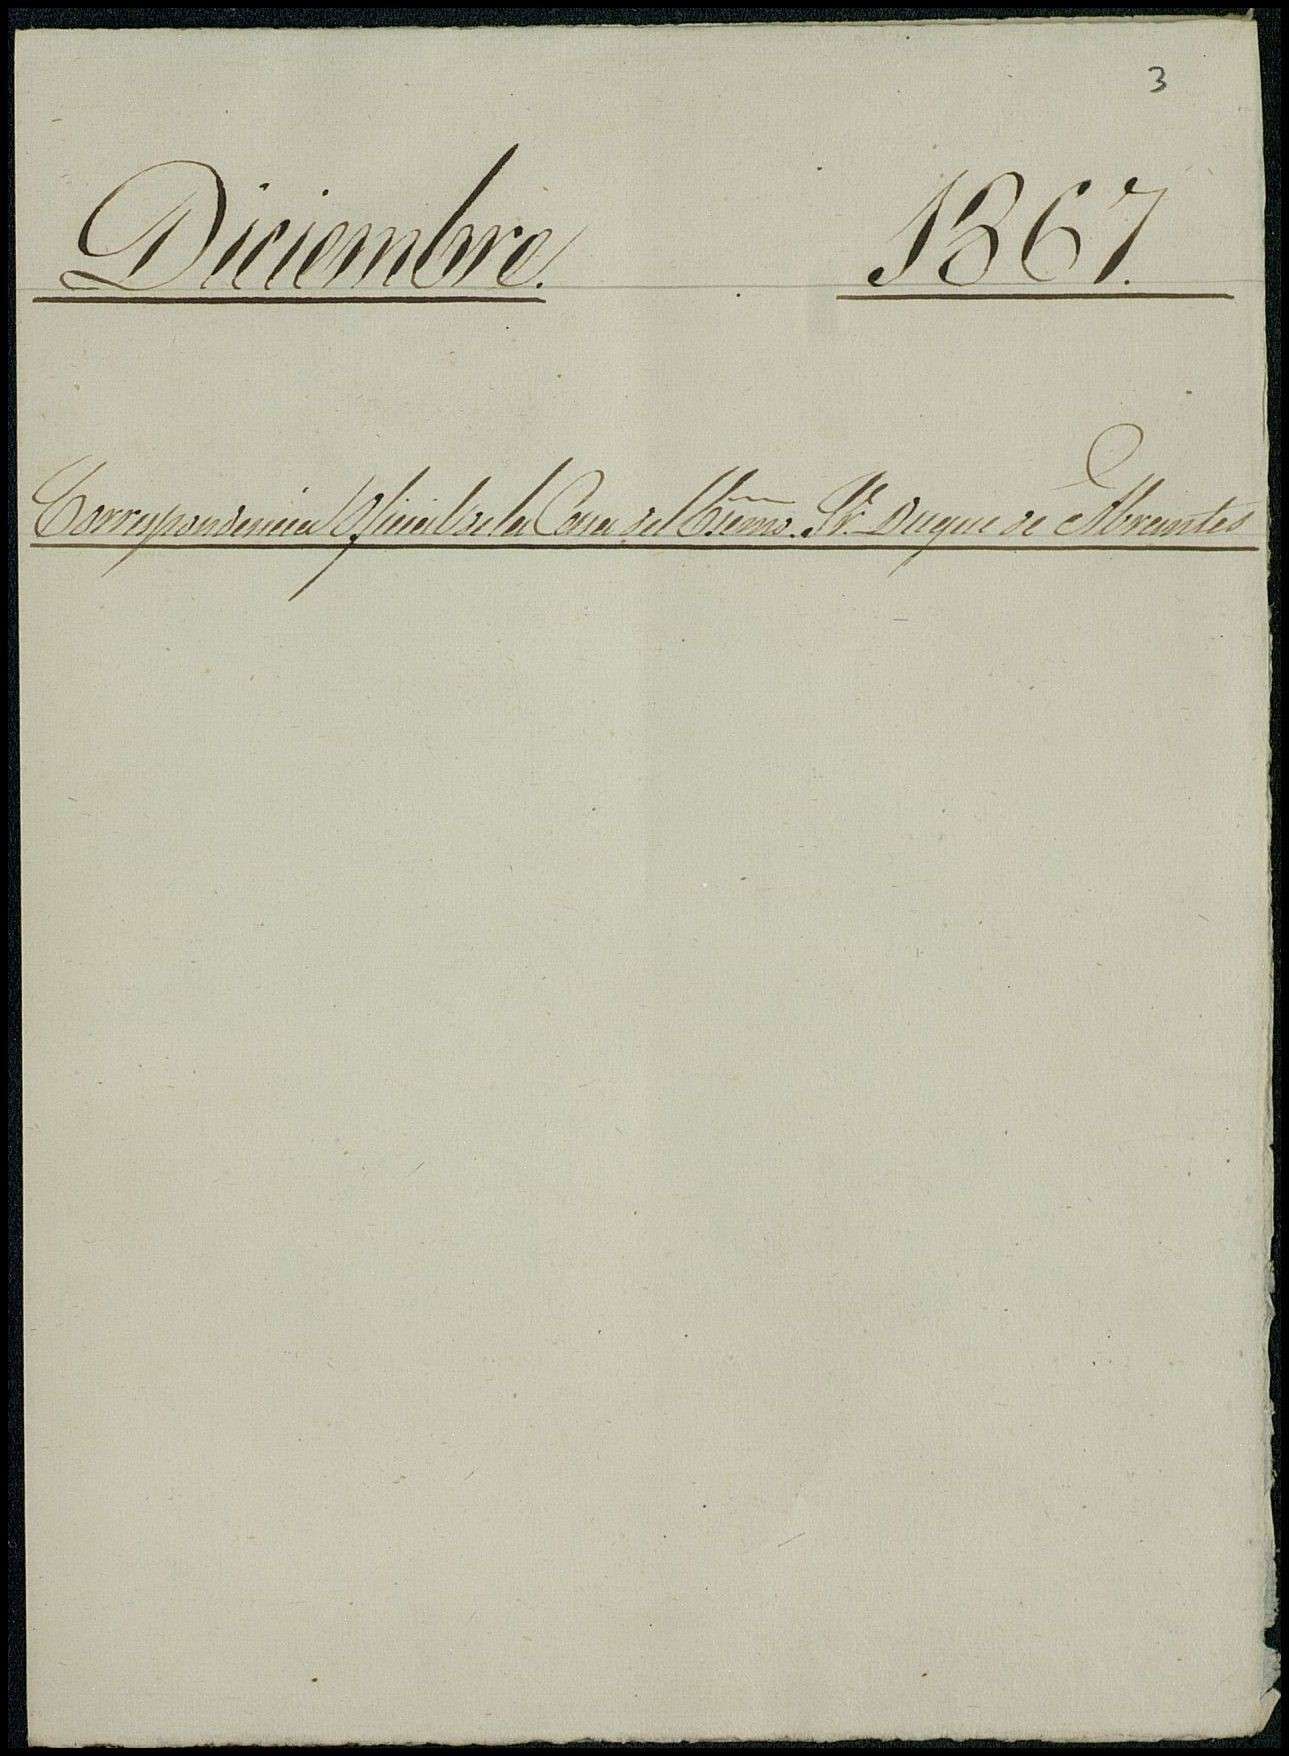 3
Diciembre. 1867.
Correspondencia Oficial de la Casa del Exmo. Sr. Duque de Abrantes